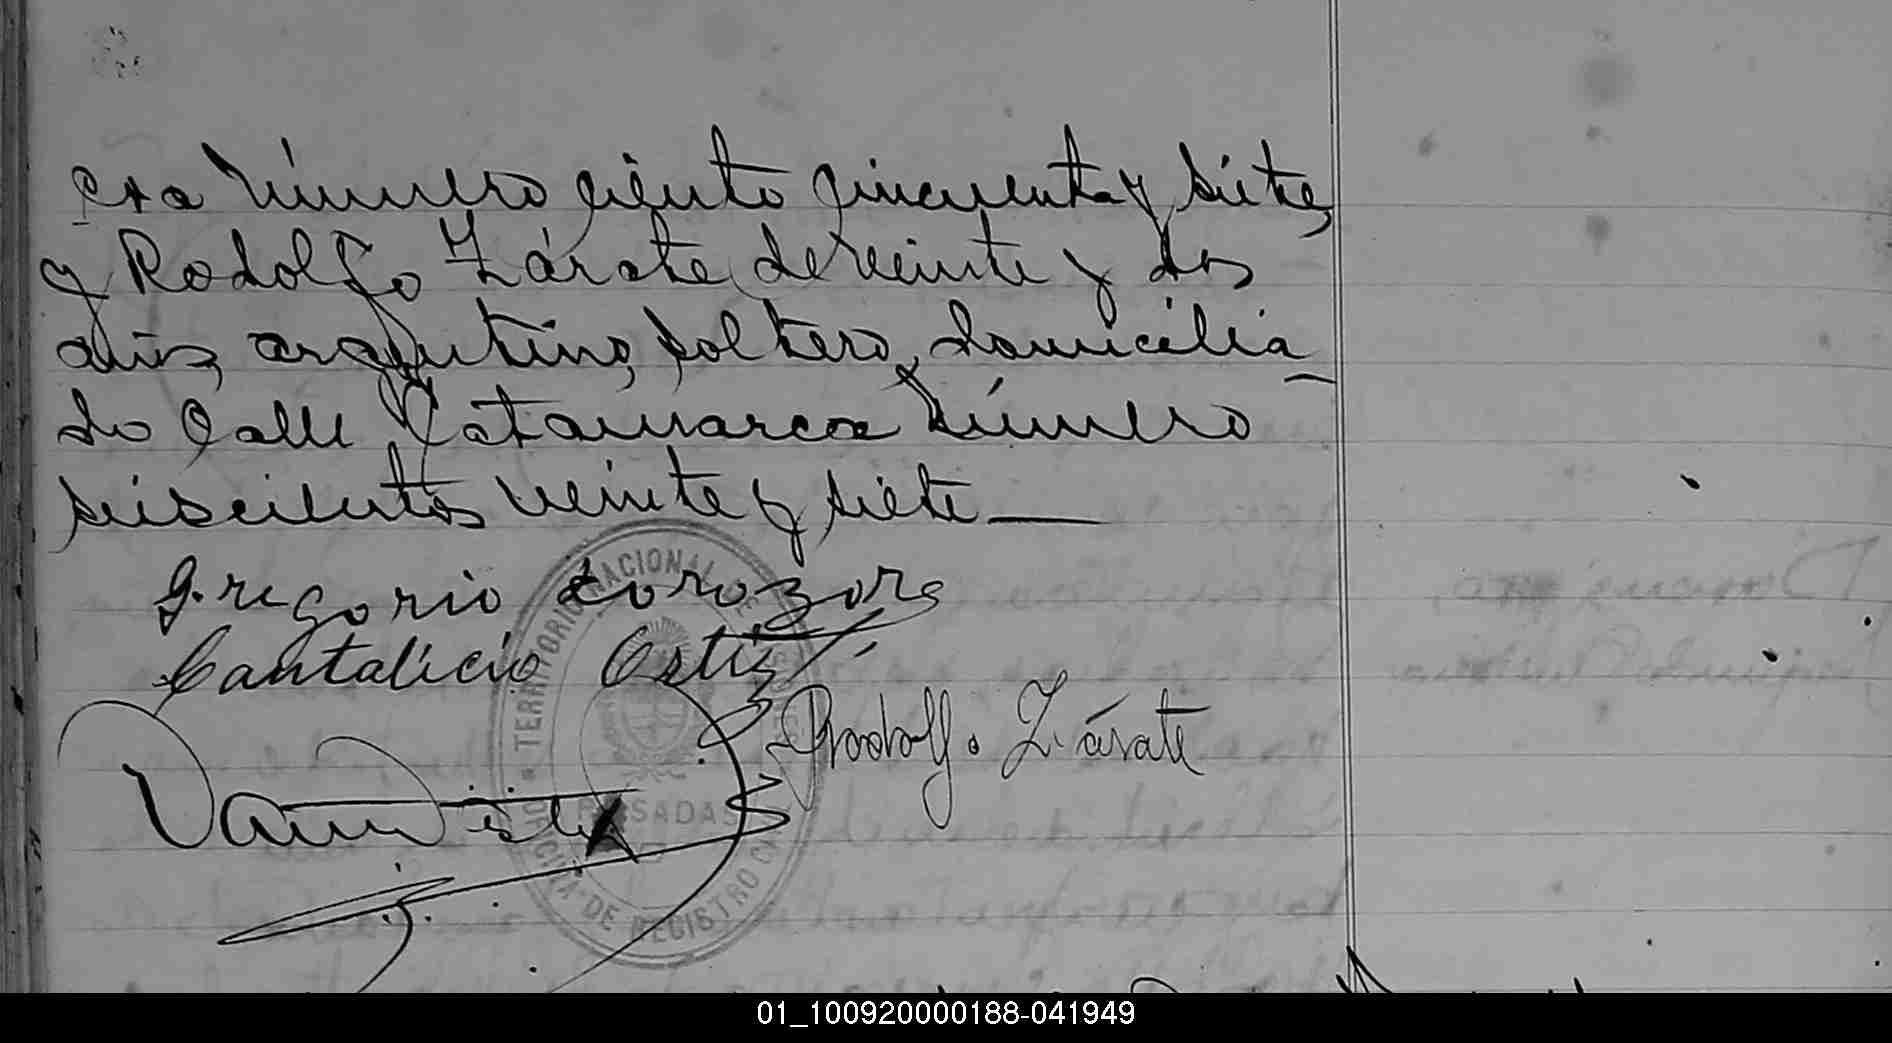 cta Número ciento cincuenta y siete,
y Rodolfo Zárate, de veinte y dos
años, argentino, soltero, domicilia
do Calle Catamarca Número
seiscientos veinte y siete —
Gregorio
Cantalicio Ortiz
Rodolfo Zárate
TERRITORIO NACIONAL DE
POSADAS
DE REGISTRO
01_100920000188-041949